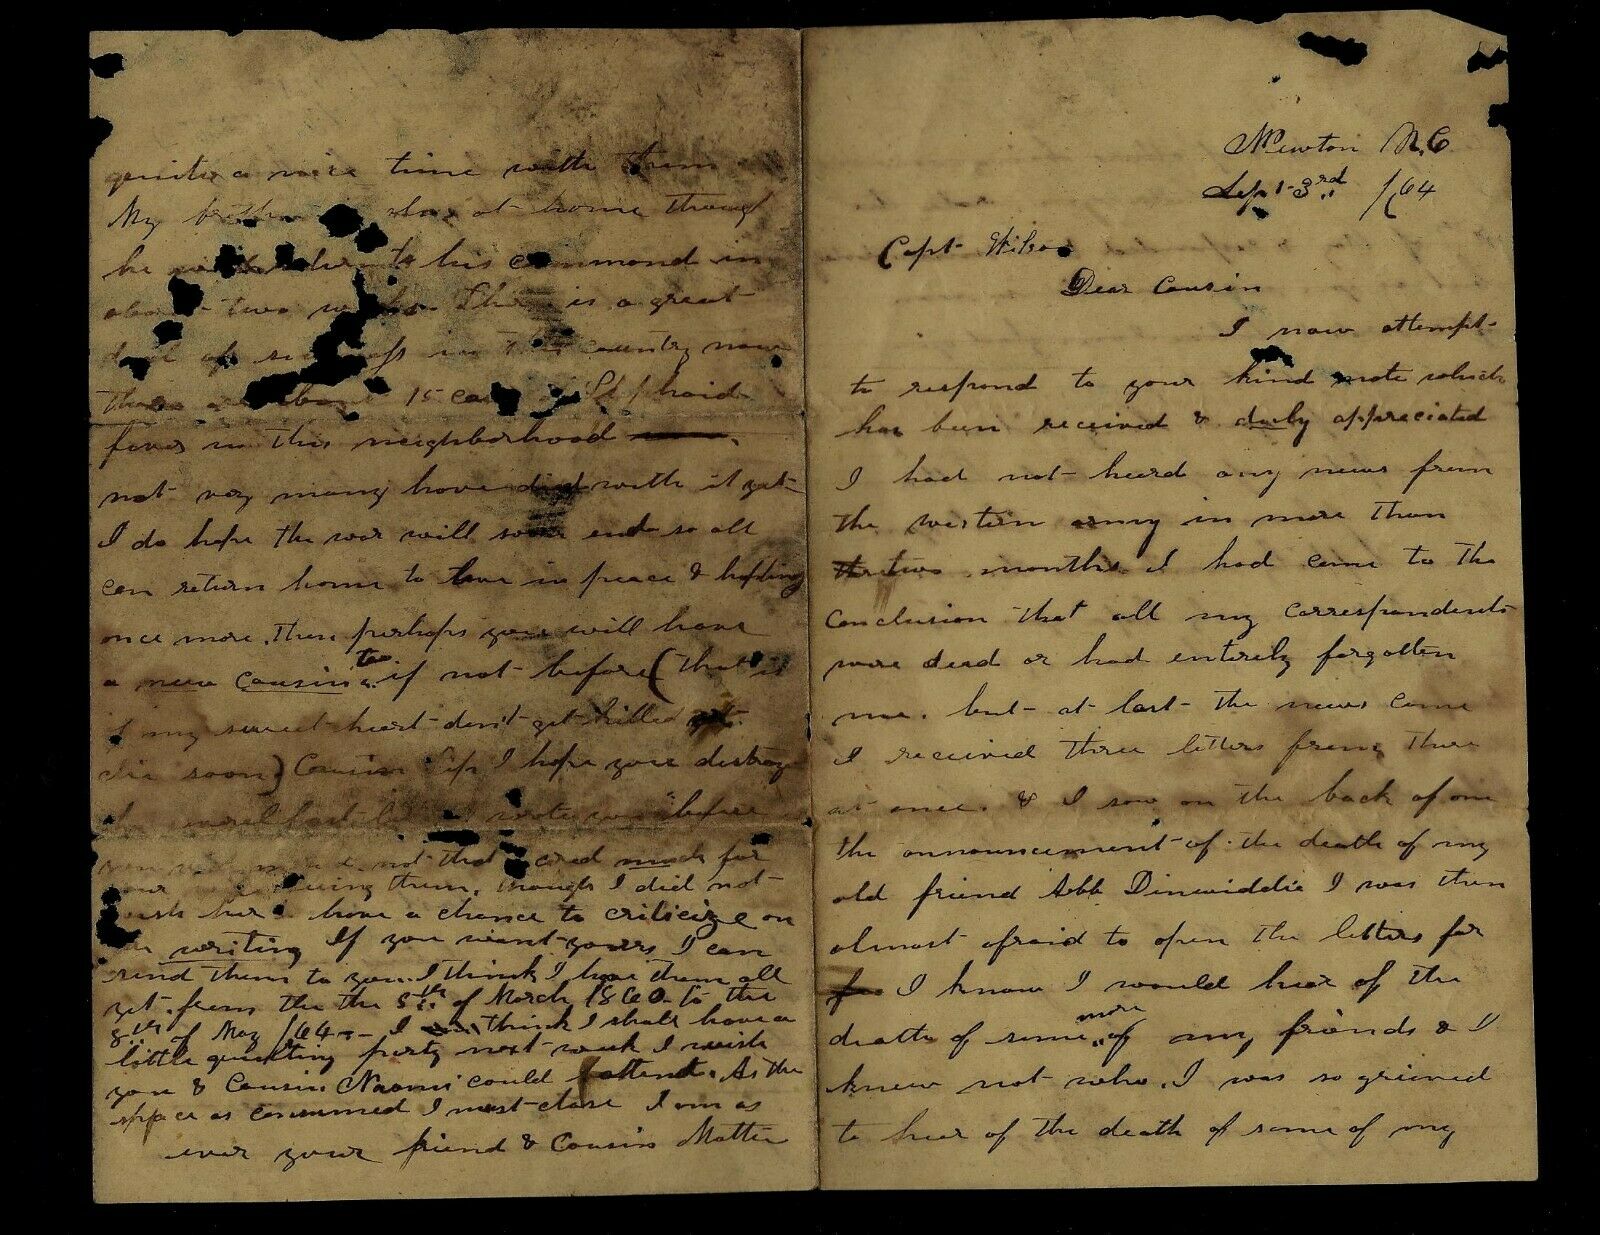 Newton N.C
Sept 3rd /64
Capt Wilson
Dear Cousin
I now attempt
to respond to your kind note which
has been received & duly appreciated
I had not heard any news from
the western army in more than
two months. I had come to the
conclusion that all my correspondents
were dead or had entirely forgotten
me. but at last the news came
I received three letters from there
at once. & I saw on the back of one
the announcement of the death of my
old friend Abb Dinwiddie I was then
almost afraid to open the letters for
I know I would hear of the
death of some more of my friends & I
knew not who. I was so grieved
to hear of the death of some of my
quite a nice time with them
My at home though
he to his command in
about two There is a great
deal of in this country now
there are about 15 Typhoid
fever in this neighborhood
not very many have died with it yet
I do hope the war will soon end so all
can return home to live in peace &
once more. then perhaps you will have
a new cousin too if not before (that is
if my sweet heart don't get killed or
die soon) Cousin I hope you destroy
wrote you before
not that I cared much for
your them, though I did not
wish her to have a chance to criticize on
my writing If you want yours I can
send them to you I think I have them all
yet. from the the 5th of March 1860 to the
8th of May /64 - I think I shall have a
little quilting party next week I wish
you & Cousin Naomi could attend. As the
space is consumed I must close I am as
ever your friend & Cousin Mattie